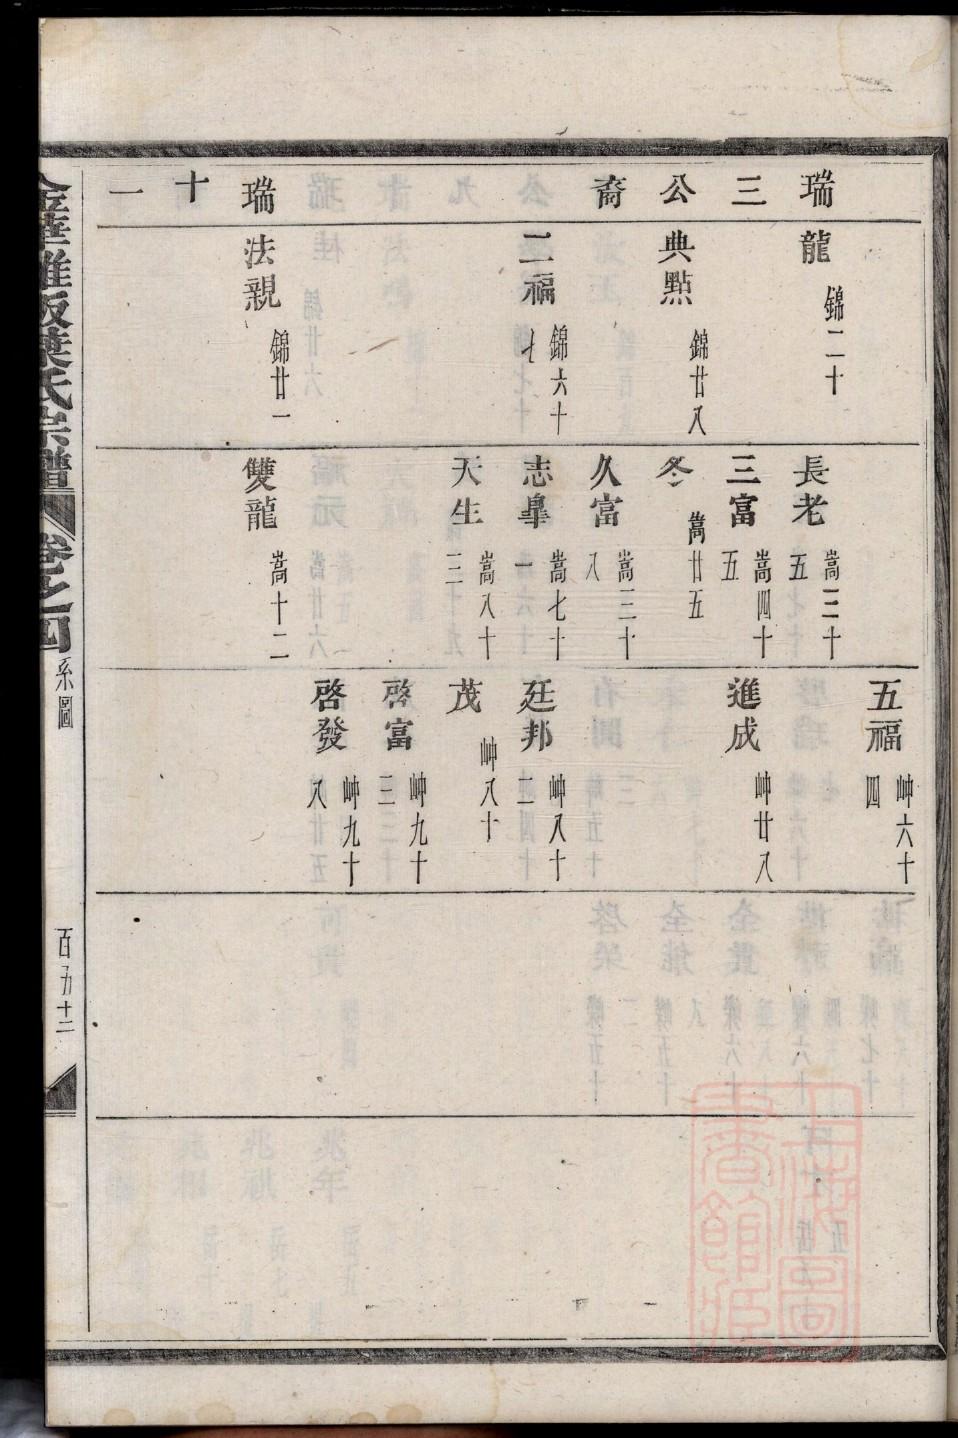 瑞三公裔
瑞十一
龍 錦二十
典點 錦廿八
二福 錦六十七
法親 錦廿一
長老 嵩三十五
三富 嵩四十五
冬 嵩廿五
久富 嵩三十八
志臯 嵩七十一
天生 嵩八十三
雙龍 嵩十二
五福 岫六十四
進成 岫廿八
廷邦 岫八十二
茂 岫八十
啓富 岫九十三
啓發 岫九十八
葉氏宗譜
卷之四
系圖
百五十二
上海圖書館藏